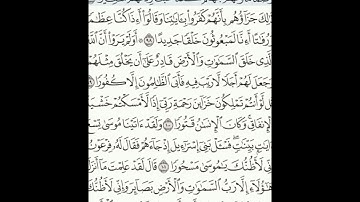 ذَٰلِكَ جَزَآؤُهُم بِأَنَّهُمْ كَفَرُوا۟ بِـَٔايَٰتِنَا وَقَالُوٓا۟ أَءِذَا كُنَّا عِظَٰمًا
وَرُفَٰتًا أَءِنَّا لَمَبْعُوثُونَ خَلْقًا جَدِيدًا ۝٩٨ أَوَلَمْ يَرَوْا۟ أَنَّ ٱللَّهَ
ٱلَّذِى خَلَقَ ٱلسَّمَٰوَٰتِ وَٱلْأَرْضَ قَادِرٌ عَلَىٰٓ أَن يَخْلُقَ مِثْلَهُمْ
وَجَعَلَ لَهُمْ أَجَلًا لَّا رَيْبَ فِيهِ فَأَبَى ٱلظَّٰلِمُونَ إِلَّا كُفُورًا
قُل لَّوْ أَنتُمْ تَمْلِكُونَ خَزَآئِنَ رَحْمَةِ رَبِّىٓ إِذًا لَّأَمْسَكْتُمْ خَشْيَةَ
ٱلْإِنفَاقِ وَكَانَ ٱلْإِنسَٰنُ قَتُورًا ۝١٠٠ وَلَقَدْ ءَاتَيْنَا مُوسَىٰ تِسْعَ
ءَايَٰتٍۭ بَيِّنَٰتٍ فَسْـَٔلْ بَنِىٓ إِسْرَٰٓءِيلَ إِذْ جَآءَهُمْ فَقَالَ لَهُۥ فِرْعَوْنُ
إِنِّى لَأَظُنُّكَ يَٰمُوسَىٰ مَسْحُورًا ۝١٠١ قَالَ لَقَدْ عَلِمْتَ مَآ أَنزَلَ
هَٰٓؤُلَآءِ إِلَّا رَبُّ ٱلسَّمَٰوَٰتِ وَٱلْأَرْضِ بَصَآئِرَ وَإِنِّى لَأَظُنُّكَ